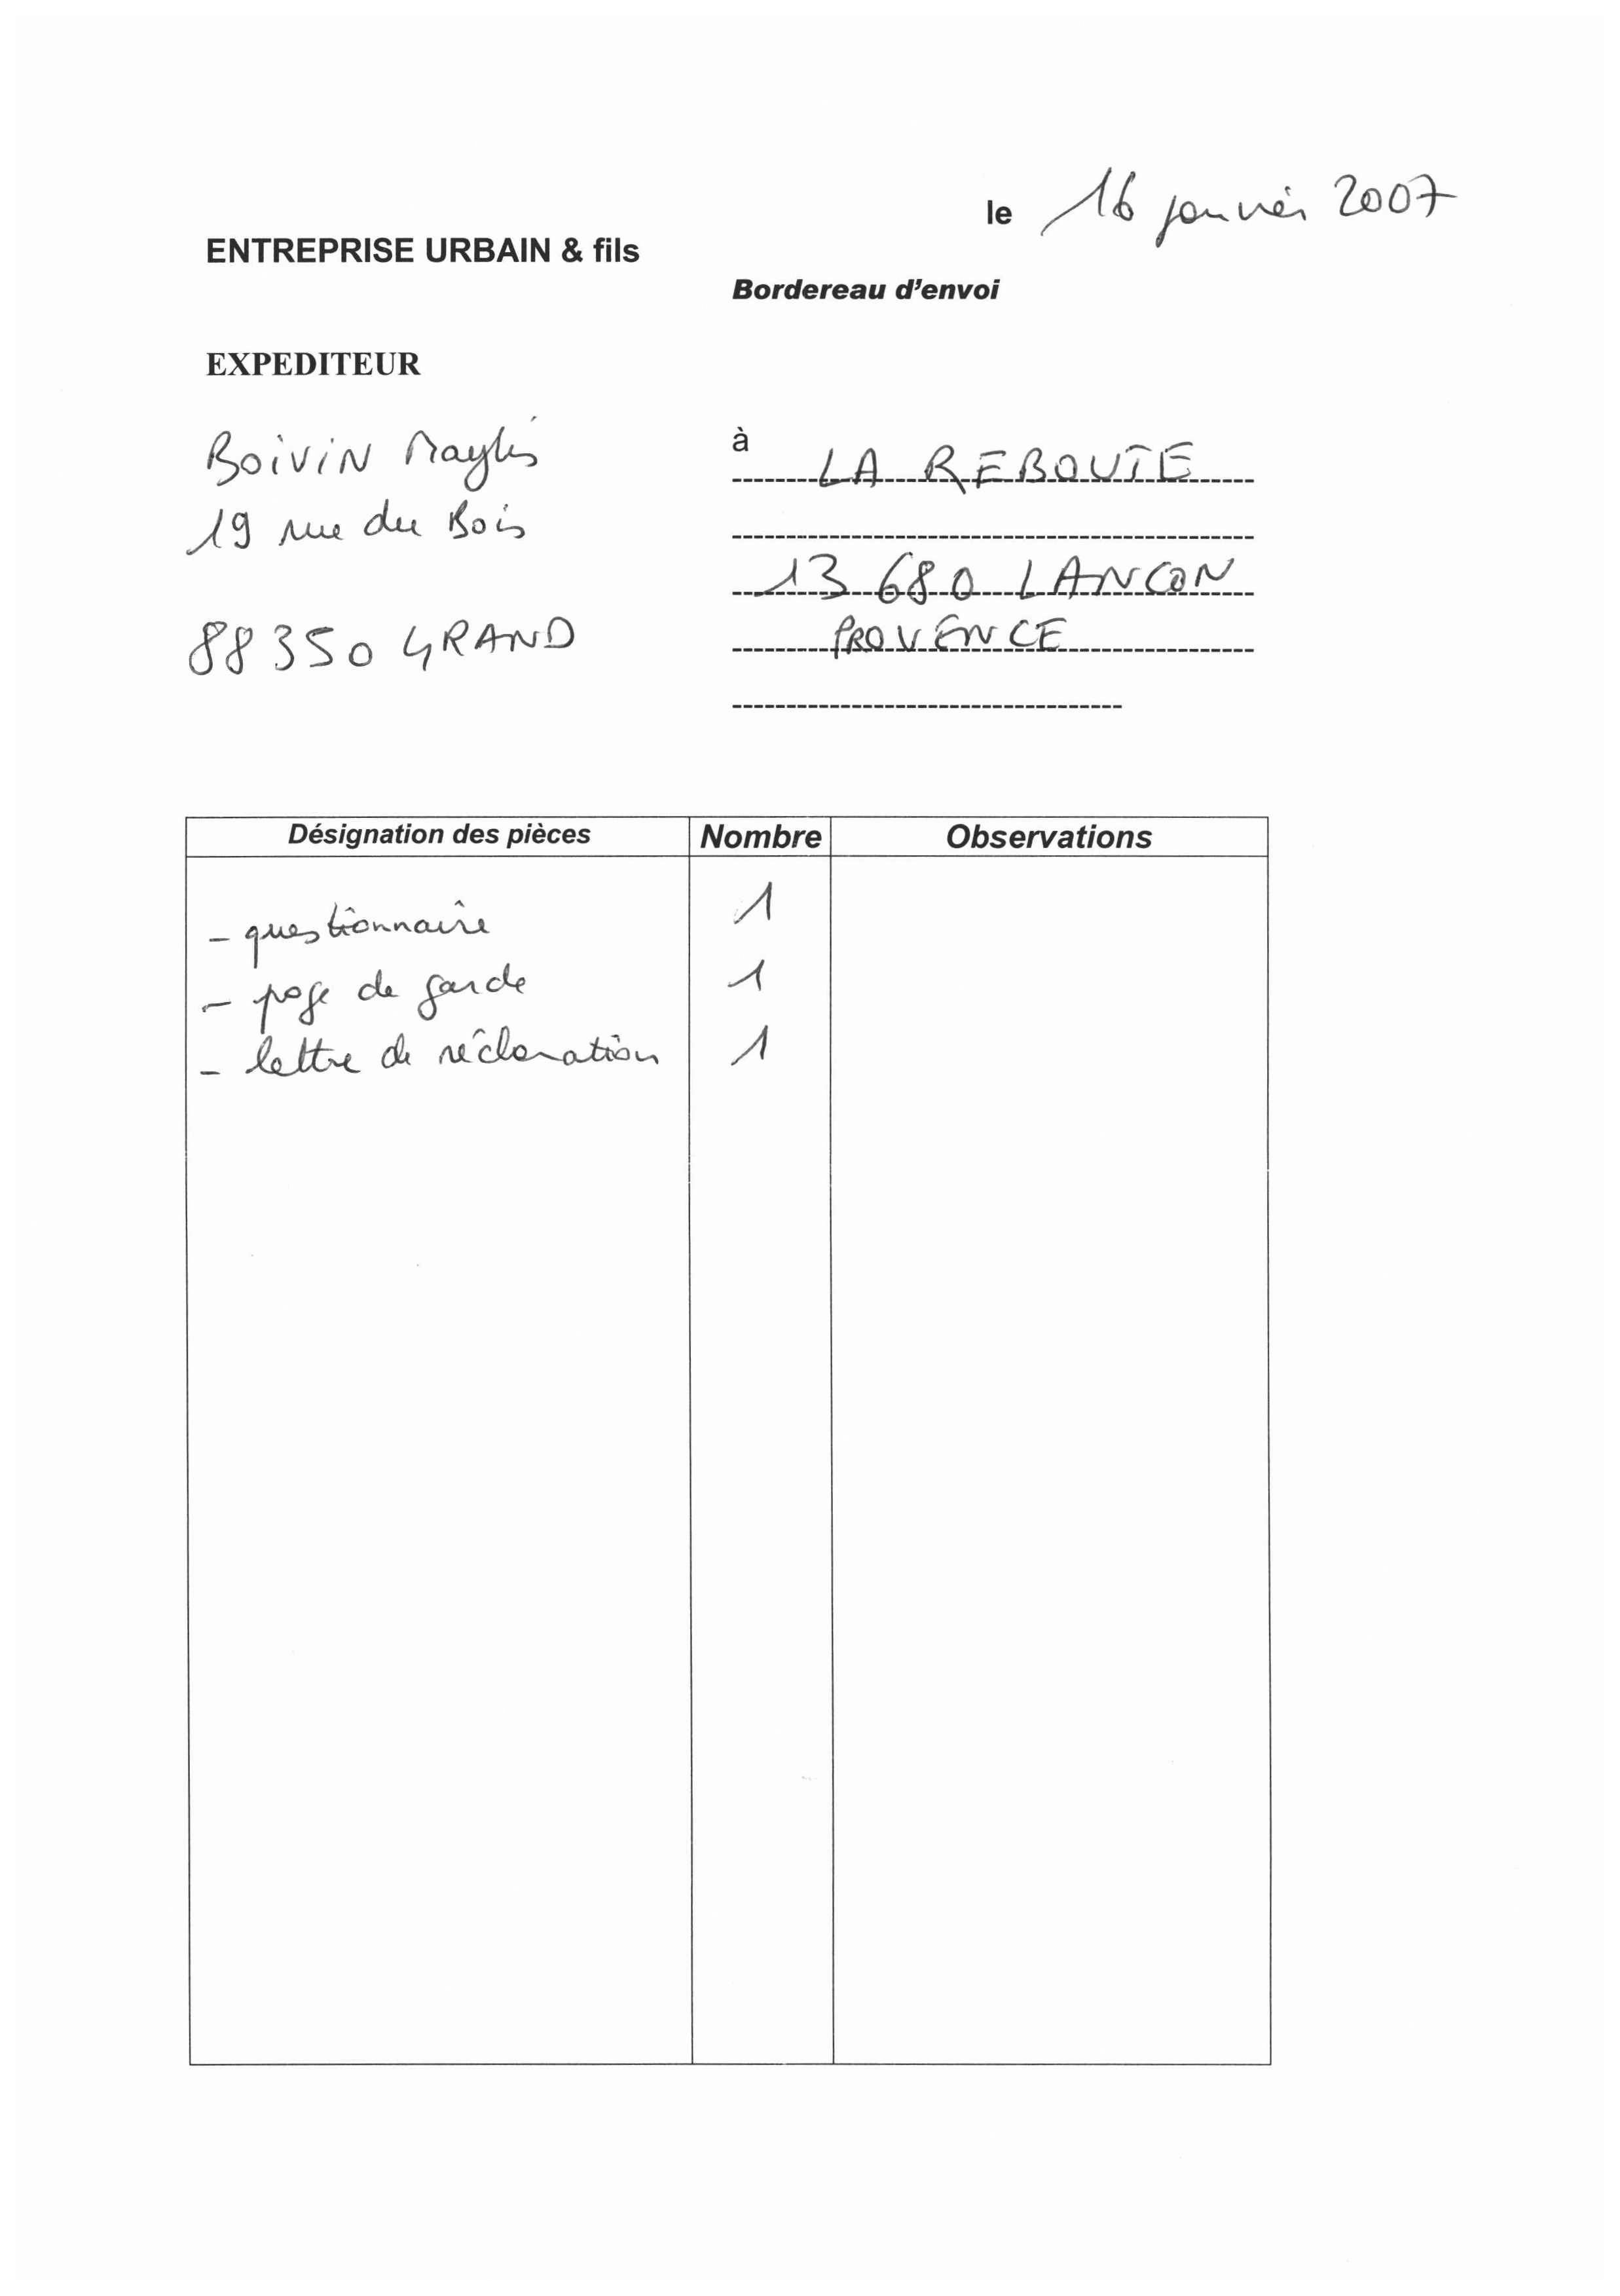 le 16 janvier 2007
ENTREPRISE URBAIN & fils
Bordereau d'envoi
EXPEDITEUR
Boivin Maylis
19 rue du Bois
88350 GRAND
à
LA REBOUTE
13 680 LANCON
PROVENCE
Désignation des pièces Nombre Observations
- questionnaire 1
- page de garde 1
- lettre de réclamation 1